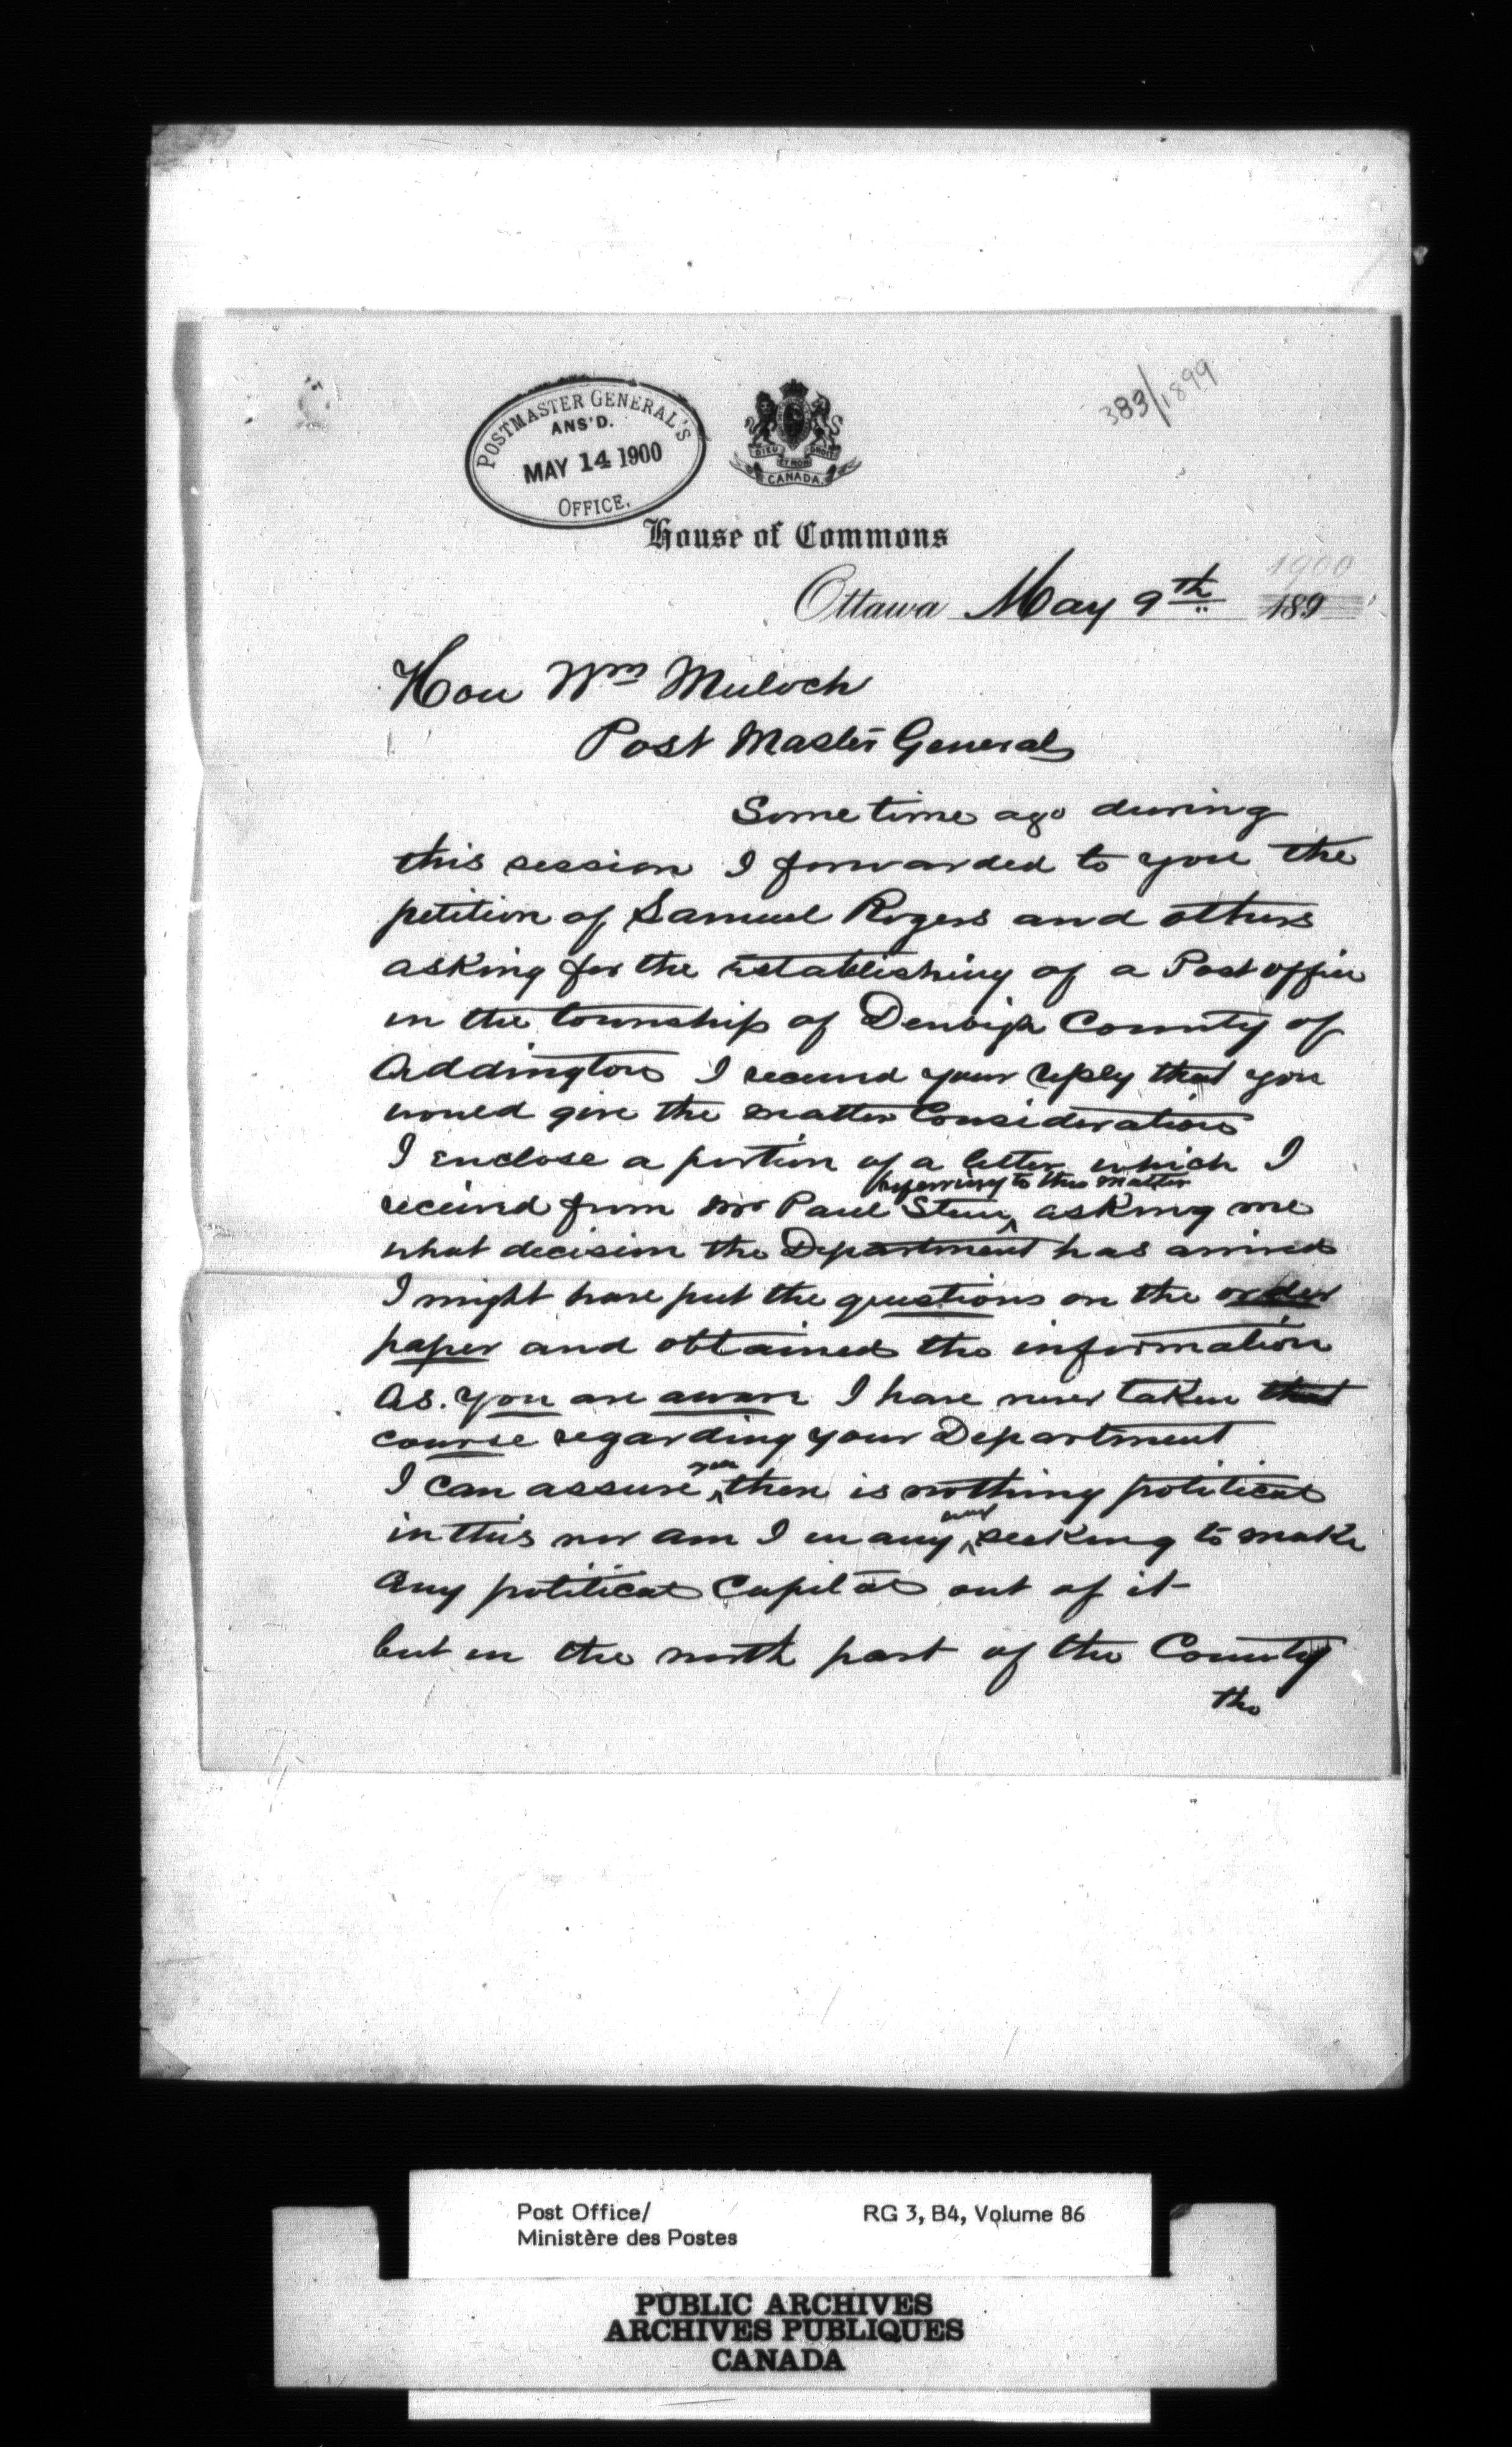 383/1899
POSTMASTER GENERAL'S
ANS'D.
MAY 14 1900
OFFICE.
DIEU ET MON DROIT
CANADA
House of Commons
1900
Ottawa May 9th 189
Hon Wm Muloch
Post Master General
Some time ago during
this session I forwarded to you the
petition of Samuel Rogers and others
asking for the establishing of a Post office
in the township of Denbigh County of
Addington I received your reply that you
would give the matter Consideration
I enclose a portion of a letter which I
referring to this matter
received from Mr Paul Stein asking me
what decision the Department has arrived
I might have put the questions on the order
paper and obtained the information
As you are aware I have never taken that
course regarding your Department
you
I can assure there is nothing political
way
in this nor am I in any seeking to make
any political Capital out of it
but in the north part of the County
the
Post Office/ RG 3, B4, Volume 86
Ministère des Postes
PUBLIC ARCHIVES
ARCHIVES PUBLIQUES
CANADA